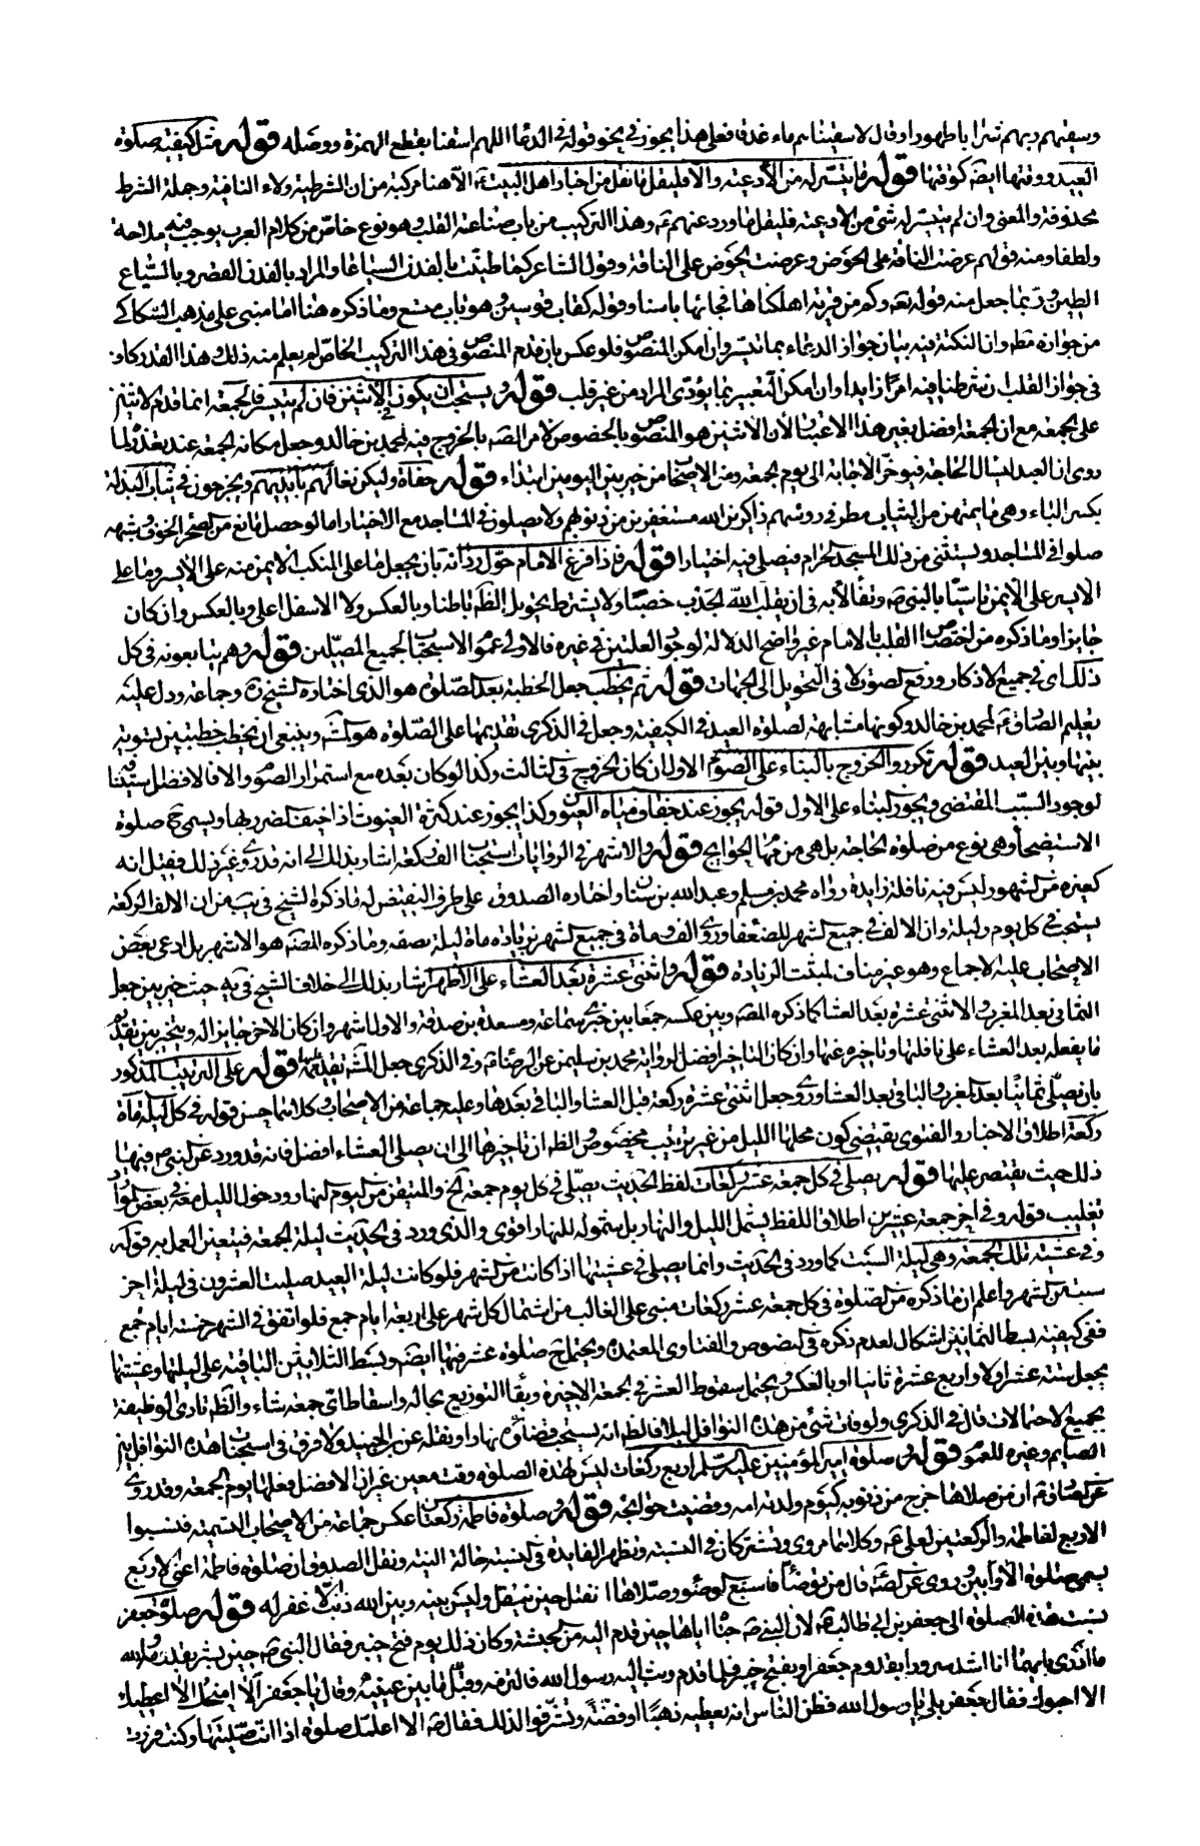 وسقيهم ربهم شرابا طهورا وقال لاسقيناهم ماء غدقا فعلى هذا يجوز في نحو قوله في الدعاء اللهم اسقنا بقطع الهمزة ووصله قوله مثل كيفية صلوة
العيد ووقتها ايضا كوقتها قوله ما تيسر له من الأدعية والا فليقل ما نقل من اخبار اهل البيت ع الا هنا مركبة من ان الشرطية ولاء النافية وجملة الشرط
محذوفة والمعنى وان لم يتيسر له شئ من الادعية فليقل ما ورد عنهم ع وهذا التركيب من باب صناعة القلب وهو نوع خاص من كلام العرب يوجب فيه ملاحة
ولطفا ومنه قولهم عرضت الناقة على الحوض وعرضت الحوض على الناقة وقول الشاعر كما طينت بالفدن السياعا والمراد بالفدن القصر وبالسياع
الطين وربما جعل منه قوله تعه وكم من قرية اهلكناها فجائها باسنا وقوله كقاب قوسين وهو باب متسع وما ذكره هنا اما مبنى على مذهب السكاكي
من جوازه مطه وان النكتة فيه بيان جواز الدعاء بما تيسر وان امكن المنصوص فلو عكس بان قدم المنصوص في هذا التركيب الخاص لم يعلم منه ذلك وهذا القدر كاف
في جواز القلب ان شرطنا فيه امرا زايدا وان امكن التعبير بما يؤدى المراد من غير قلب قوله ويستحب ان يكون في الاثنين فان لم يتيسر فالجمعة انما قدم الاثنين
على الجمعة مع ان الجمعة افضل بغير هذا الاعتبار لأن الاثنين هو المنصوص بالخصوص لامر الصه بالخروج فيه لمحمد بن خالد وجعل مكانه الجمعة عند تعذره لما
روى ان العبد ليسال الحاجة فيوخر الاجابة الى يوم الجمعة ومن الاصحاب من خير بين اليومين ابتداء قوله حفاة وليكن نعالهم بايديهم ويخرجون في ثياب البذلة
بكسر الباء وهى ما يمتهن من الثياب مطرقي رؤسهم ذاكرين الله مستغفرين من ذنوبهم ولا يصلون في المساجد مع الاختيار اما لو حصل مانع من الصحراء لخوف وشبهه
صلوا في المساجد ويستثنى من ذلك المسجد الحرام فيصلى فيه اختيارا قوله فاذا فرغ الامام حول ردائه بان يجعل ما على المنكب الايمن منه على الأيسر وما على
الايسر على الأيمن تاسيا بالنبى ص وتفألا به في ان يقلب الله الجدب خصبا ولا يشترط تحويل الظاهر باطنا وبالعكس ولا الاسفل اعلى وبالعكس وان كان
جايزا وما ذكره من اختصاص القلب بالامام غير واضح الدلالة لوجود العلتين في غيره فالاولى عموم الاستحباب لجميع المصلين قوله وهم يتابعونه في كل
ذلك اى في جميع الاذكار ورفع الصوت لا في التحويل الى الجهات قوله ثم يخطب جعل الخطبة بعد الصلوة هو الذى اختاره الشيخ ره وجماعة ودل عليه
تعليم الصادق ع لمحمد بن خالد وكونها مشابهة لصلوة العيد في الكيفية وجعل في الذكرى تقديمها على الصلوة هو المشه وينبغي ان يخطب خطبتين تسوية
بينها وبين العيد قوله تكرر والخروج بالبناء على الصوم الاول ان كان الخروج في الثالث وكذا لو كان بعده مع استمرار الصوم والا فالافضل استينافه
لوجود السبب المقتضى ويجوز البناء على الاول قوله يجوز عند جفاف مياه العيون وكذا يجوز عند كثرة الغيوث اذا خيف الضرر بها ويسمى ح صلوة
الاستصحاء وهى نوع من صلوة الحاجة بل هى من مهام الحوايج قوله والاشهر في الروايات استحباب الف ركعة اشار بذلك الى انه قد روى غير ذلك فقيل انه
كغيره من الشهور ليس فيه نافلة زايدة رواه محمد بن مسلم وعبد الله بن سنان واختاره الصدوق على طرف النقيض له ما ذكره الشيخ في يب من ان الالف ركعة
يستحب في كل يوم وليلة وان الالف في جميع الشهر للضعفاء وروى الف ومأة في جميع الشهر بزيادة مأة ليلة نصفه وما ذكره المصه هو الاشهر بل ادعى بعض
الاصحاب عليه الاجماع وهو غير مناف لمثبت الزيادة قوله واثنتى عشرة بعد العشاء على الأظهر اشار بذلك الى خلاف الشيخ في يه حيث خير بين جعل
الثمانى بعد المغرب والاثنتى عشرة بعد العشاء كما ذكره المصه وبين عكسه جمعا بين خبرى سماعة ومسعدة بن صدقة والاول اشهر وان كان الاخر جايزا له ويتخير بين تقديم
ما يفعله بعد العشاء على نافلتها وتاخيره عنها وان كان التاخير افضل لرواية محمد بن سليمن عن الرضا ع وفى الذكرى جعل المشه تقديمها قوله على الترتيب المذكور
بان يصلى ثمانيا بعد المغرب والباقى بعد العشاء وروى جعل اثنتى عشرة ركعة قبل العشاء والباقى بعدها وعليه جماعة من الاصحاب وكلاهما حسن قوله في كل ليلة مأة
ركعة اطلاق الاخبار والفتوى يقتضى كون محلها الليل من غير ترتيب مخصوص والظه ان تاخيرها الى ان يصلى العشاء افضل فانه قد ورد عن النبى ص فيها
ذلك حيث يقتصر عليها قوله يصلى في كل جمعة عشر ركعات لفظ الحديث يصلى في كل يوم جمعة الخ والمتيقن من اليوم النهار ودخول الليل معه في بعض الموارد
تغليب قوله وفى اخر جمعة عشرين اطلاق اللفظ يشمل الليل والنهار بل شموله للنهار اقوى والذى ورد في الحديث ليلة الجمعة فيتعين العمل به قوله
وفى عشية تلك الجمعة وهى ليلة السبت كما ورد في الحديث وانما يصلى في عشيتها اذا كانت من الشهر فلو كانت ليلة العيد صليت العشرون في ليلة اخر
سبت من الشهر واعلم ان ما ذكره من الصلوة في كل جمعة عشر ركعات مبنى على الغالب من اشتمال كل شهر على اربعة ايام جمع فلو اتفق في الشهر خمسة ايام جمع
ففى كيفية بسط الثمانين اشكال لعدم ذكره في النصوص والفتاوى المعتمدة ويحتمل ح صلوة عشر فيها ايضا وبسط الثلاثين الباقية على ليلتها وعشيتها
بجعل ستة عشر اولا واربع عشرة ثانيا او بالعكس ويحتمل سقوط العشر في الجمعة الاخيرة وبقاء التوزيع بحاله واسقاط اى جمعة شاء والظه تادى الوظيفة
بجميع الاحتمالات قال في الذكرى ولو فات شئ من هذه النوافل ليلا فالظه انه يستحب قضاؤه نهارا ونقله عن ابن الجنيد ولا فرق في استحباب هذه النوافل بين
الصايم وغيره للعموم قوله وصلوة امير المؤمنين عليه السلم اربع ركعات ليس لهذه الصلوة وقت معين غير ان الافضل فعلها يوم الجمعة وقد روى
عن الصادق ع ان من صلاها خرج من ذنوبه كيوم ولدته امه وقضيت حوائجه قوله وصلوة فاطمة ركعتان عكس جماعة من الاصحاب التسمية فنسبوا
الاربع لفاطمة والركعتين لعلى ع وكلاهما مروى وتشتركان في النسبة وتظهر الفايدة في النسبة حالة النية ونقل الصدوق ان صلوة فاطمة اعنى الاربع
يسمى صلوة الاوابين وروى عن الصه ع قال من توضأ فاسبغ الوضوء وصلاها انفتل حين ينفتل وليس بينه وبين الله ذنب الا غفر له قوله صلوة جعفر
نسبت هذه الصلوة الى جعفر بن ابى طالب ع لان النبى ص حباه اياها حين قدم اليه من الحبشة وكان ذلك يوم فتح خيبر فقال النبى ص حين بشر بقدومه والله
ما ادرى بايهما انا اشد سرورا بقدوم جعفر او بفتح خيبر فلما قدم وثب اليه رسول الله فالتزمه وقبل ما بين عينيه وقال يا جعفر ألا امنحك الا اعطيك
الا احبوك فقال جعفر بلى يا رسول الله فظن الناس انه يعطيه ذهبا او فضة وتشرفوا لذلك فقال ص الا اعلمك صلوة اذا انت صليتها وكنت فررت